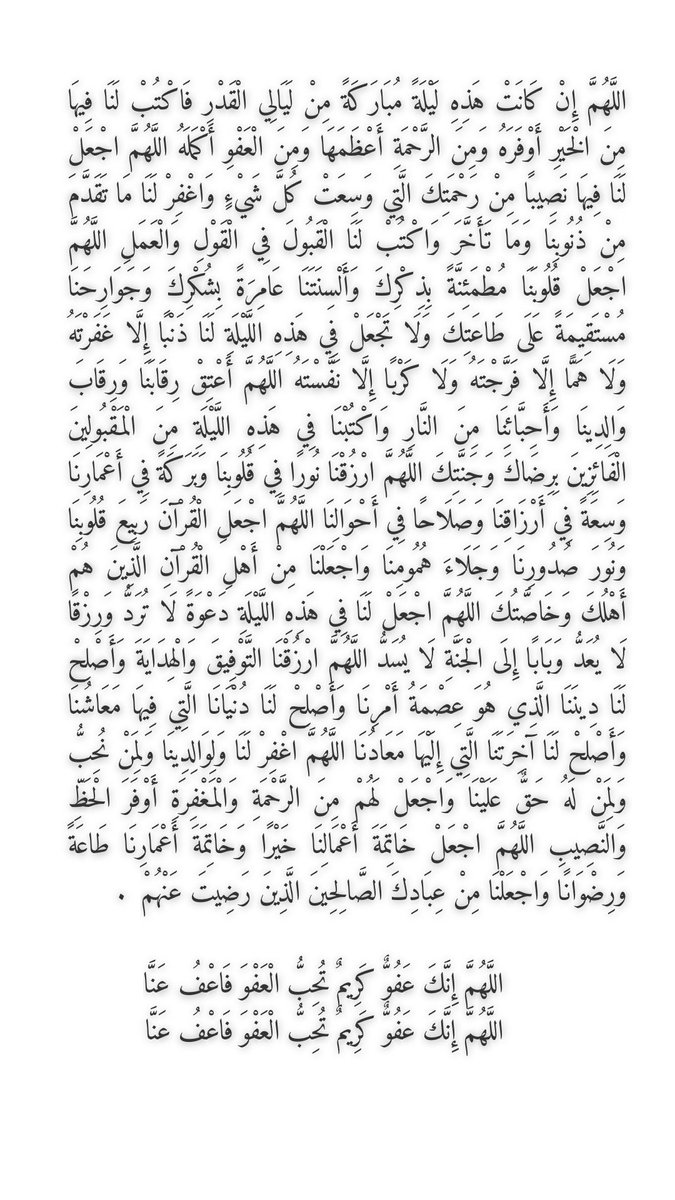 اللَّهُمَّ إِنْ كَانَتْ هَذِهِ لَيْلَةً مُبَارَكَةً مِنْ لَيَالِي الْقَدْرِ فَاكْتُبْ لَنَا فِيهَا
مِنَ الْخَيْرِ أَوْفَرَهُ وَمِنَ الرَّحْمَةِ أَعْظَمَهَا وَمِنَ الْعَفْوِ أَكْمَلَهُ اللَّهُمَّ اجْعَلْ
لَنَا فِيهَا نَصِيبًا مِنْ رَحْمَتِكَ الَّتِي وَسِعَتْ كُلَّ شَيْءٍ وَاغْفِرْ لَنَا مَا تَقَدَّمَ
مِنْ ذُنُوبِنَا وَمَا تَأَخَّرَ وَاكْتُبْ لَنَا الْقَبُولَ فِي الْقَوْلِ وَالْعَمَلِ اللَّهُمَّ
اجْعَلْ قُلُوبَنَا مُطْمَئِنَّةً بِذِكْرِكَ وَأَلْسِنَتَنَا عَامِرَةً بِشُكْرِكَ وَجَوَارِحَنَا
مُسْتَقِيمَةً عَلَى طَاعَتِكَ وَلَا تَجْعَلْ فِي هَذِهِ اللَّيْلَةِ لَنَا ذَنْبًا إِلَّا غَفَرْتَهُ
وَلَا هَمًّا إِلَّا فَرَّجْتَهُ وَلَا كَرْبًا إِلَّا نَفَّسْتَهُ اللَّهُمَّ أَعْتِقْ رِقَابَنَا وَرِقَابَ
وَالِدِينَا وَأَحِبَّائِنَا مِنَ النَّارِ وَاكْتُبْنَا فِي هَذِهِ اللَّيْلَةِ مِنَ الْمَقْبُولِينَ
الْفَائِزِينَ بِرِضَاكَ وَجَنَّتِكَ اللَّهُمَّ ارْزُقْنَا نُورًا فِي قُلُوبِنَا وَبَرَكَةً فِي أَعْمَارِنَا
وَسِعَةً فِي أَرْزَاقِنَا وَصَلَاحًا فِي أَحْوَالِنَا اللَّهُمَّ اجْعَلِ الْقُرْآنَ رَبِيعَ قُلُوبِنَا
وَنُورَ صُدُورِنَا وَجَلَاءَ هُمُومِنَا وَاجْعَلْنَا مِنْ أَهْلِ الْقُرْآنِ الَّذِينَ هُمْ
أَهْلُكَ وَخَاصَّتُكَ اللَّهُمَّ اجْعَلْ لَنَا فِي هَذِهِ اللَّيْلَةِ دَعْوَةً لَا تُرَدُّ وَرِزْقًا
لَا يُعَدُّ وَبَابًا إِلَى الْجَنَّةِ لَا يُسَدُّ اللَّهُمَّ ارْزُقْنَا التَّوْفِيقَ وَالْهِدَايَةَ وَأَصْلِحْ
لَنَا دِينَنَا الَّذِي هُوَ عِصْمَةُ أَمْرِنَا وَأَصْلِحْ لَنَا دُنْيَانَا الَّتِي فِيهَا مَعَاشُنَا
وَأَصْلِحْ لَنَا آخِرَتَنَا الَّتِي إِلَيْهَا مَعَادُنَا اللَّهُمَّ اغْفِرْ لَنَا وَلِوَالِدِينَا وَلِمَنْ نُحِبُّ
وَلِمَنْ لَهُ حَقٌّ عَلَيْنَا وَاجْعَلْ لَهُمْ مِنَ الرَّحْمَةِ وَالْمَغْفِرَةِ أَوْفَرَ الْحَظِّ
وَالنَّصِيبِ اللَّهُمَّ اجْعَلْ خَاتِمَةَ أَعْمَالِنَا خَيْرًا وَخَاتِمَةَ أَعْمَارِنَا طَاعَةً
وَرِضْوَانًا وَاجْعَلْنَا مِنْ عِبَادِكَ الصَّالِحِينَ الَّذِينَ رَضِيتَ عَنْهُمْ .
اللَّهُمَّ إِنَّكَ عَفُوٌّ كَرِيمٌ تُحِبُّ الْعَفْوَ فَاعْفُ عَنَّا
اللَّهُمَّ إِنَّكَ عَفُوٌّ كَرِيمٌ تُحِبُّ الْعَفْوَ فَاعْفُ عَنَّا